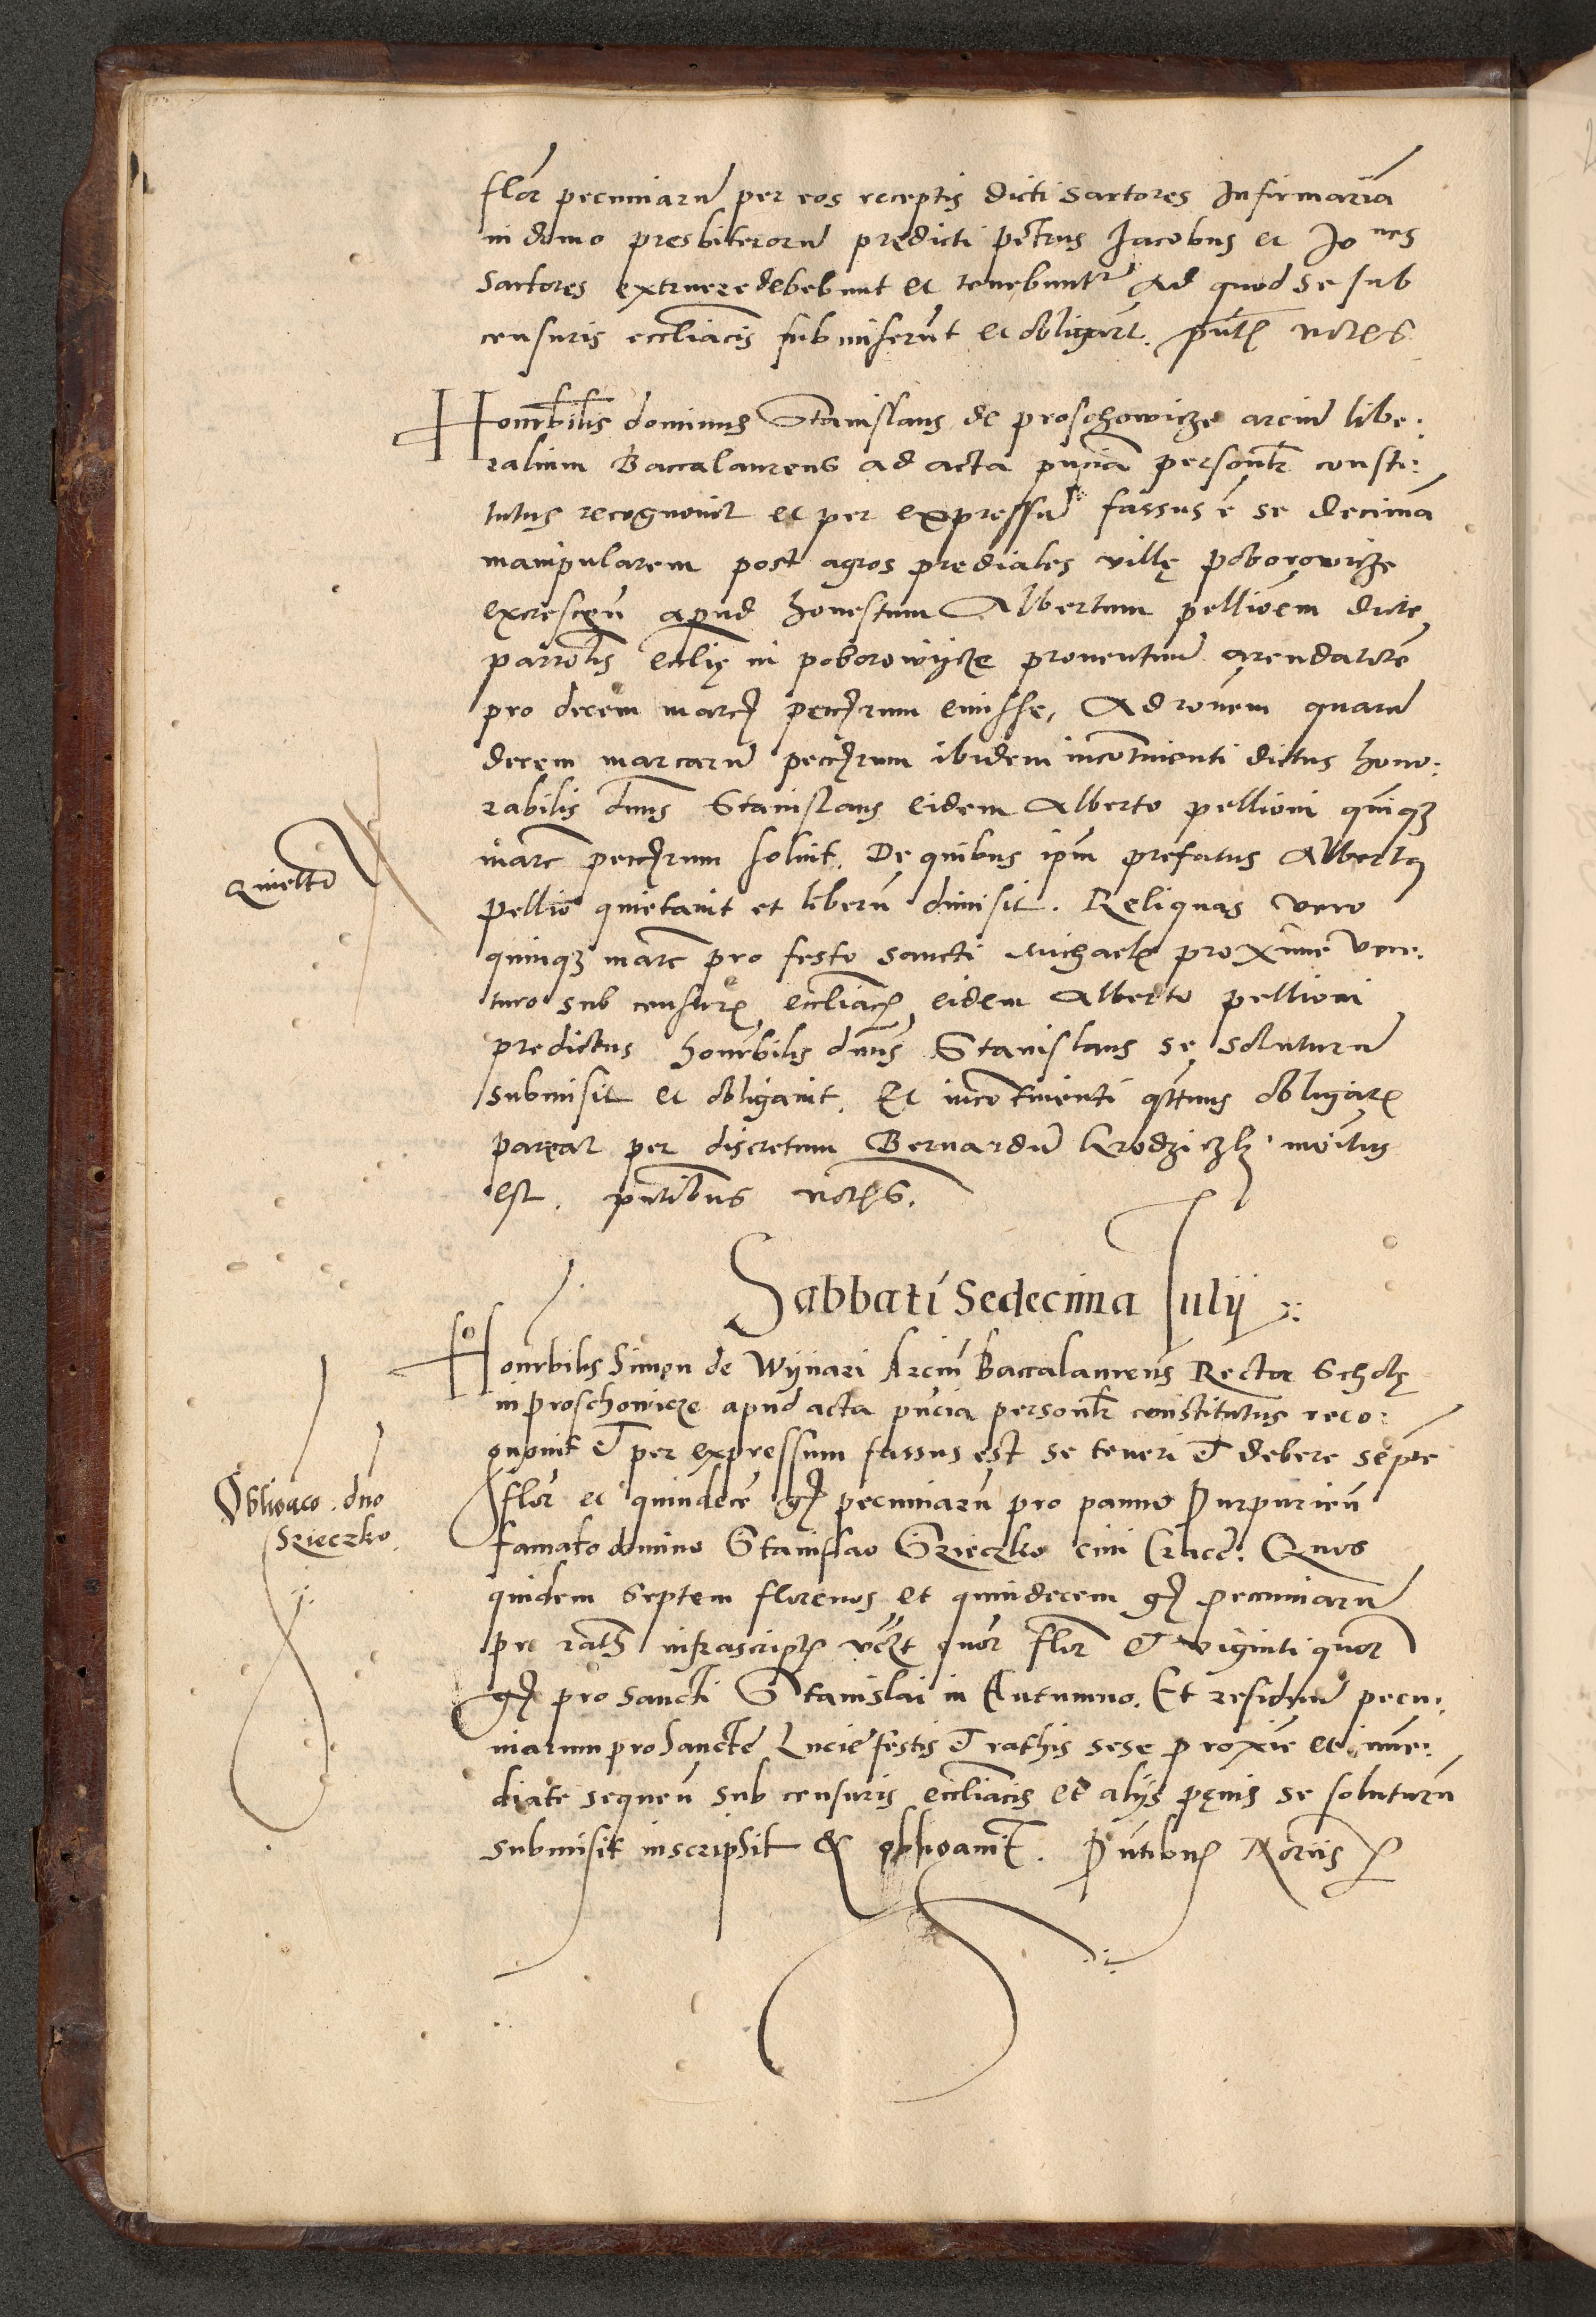 flor pecuniarū per eos receptis dicti sartores Infirmariā
in domo presbiterorū prędicti petrus Jacobus et Jo nes
Sartores extruere debebunt et tenebuntr Ad quod se sub
censuris eccliacis submiserūt et obligarūt. pntῖ
Honrbilis dominus Stanislaus de proschowicze arciū libe:
ralium Baccalaureus ad acta pncia personlr consti:
tutus recognovit et per expressū fassus ē se decimā
manipularem post agros prediales villę poborowicze
excrescen apud honestum Albertum pellioēm dicte
parrolis ecclię in poborowijcze proventuum arendatorē
pro decem marcis pecciarum emisse, Ad ronem quarū
decem marcarū pecciarum ibidem incontinenti dictus hono:
rabilis dnus Stanislaus eidem Alberto pellioni quīqz
marc pecciarum solvit. De quibus ipm prefatus Albertus
Pellio quietavit et liberū dimisit. Reliquas vero
quinqz marc pro festo sancti Michaelis proxime ven:
turo sub censuris eccliacis eidem Alberto pellioni
predictus honrbilis dnus Stanislaus se soluturū
submisit et obligavit. Et incontinenti qtenus obligacῖ
pareat per discretum Bernardū moitus
est. pntibus
Quietto
Sabbati Sedecima Julij
Honrbilis Simon de Wijnari Arciū Baccalaureus Rector Scholę
in proschowicze apud acta pncia personlr constitutus reco:
gnovit et per expressum fassus est se teneri et debere septe
flor et quindecē gs pecuniarū pro panno Purpurien
famato domino Stanislao Srzieczko civi Cracē. Quos
quidem Septem florenos et quindecem gs pecuniarū
pro rath infrascriptis vczt quor flor et viginti quor
gs pro sancti Stanislai in Autumno. Et residuū pecu:
niarum pro Sancte Lucie festis et rathis sese proxie et imme:
diate sequen sub censuris eccliacis et alijs pęnis se soluturū
submisit inscripsit et obligavit. Pntibus
Obligaco dno
Srzieczko